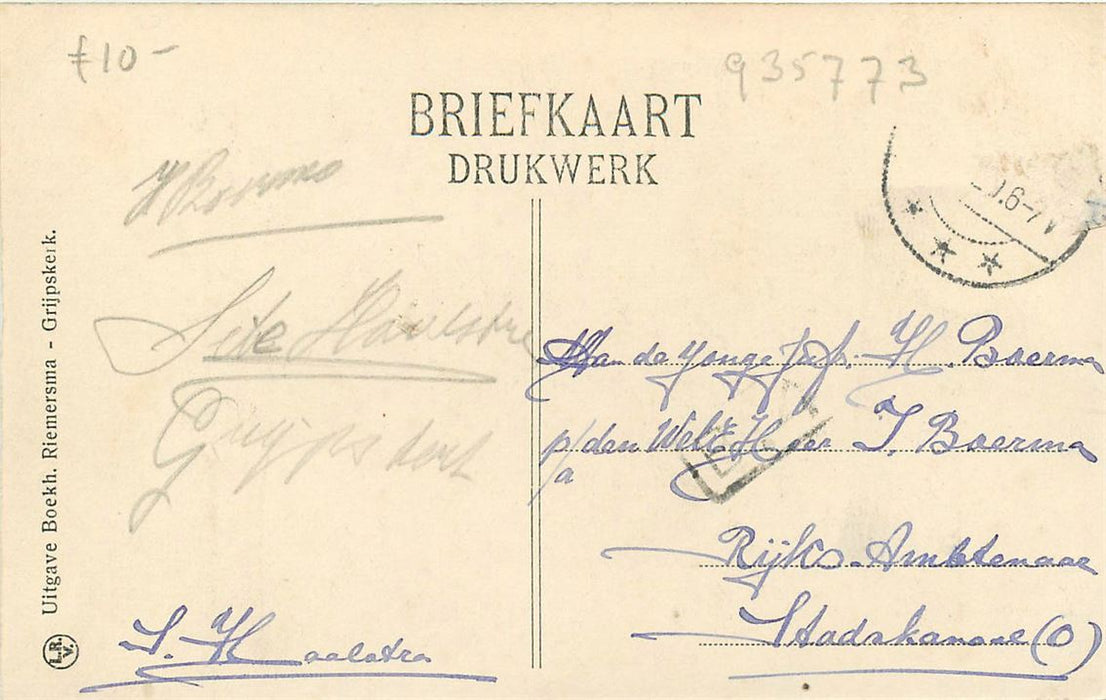 £10-
935773
BRIEFKAART
DRUKWERK
H Boerma
0.6-7 V
Site Haalstra
Grijpskerk
S. Haalstra
Aan de Jonge Jufr. H. Boerma
p/a den WelE. Heer J. Boerma
Rijks-Ambtenaar
Stadskanaal (O)
Uitgave Boekh. Riemersma - Grijpskerk.
L.R.V.